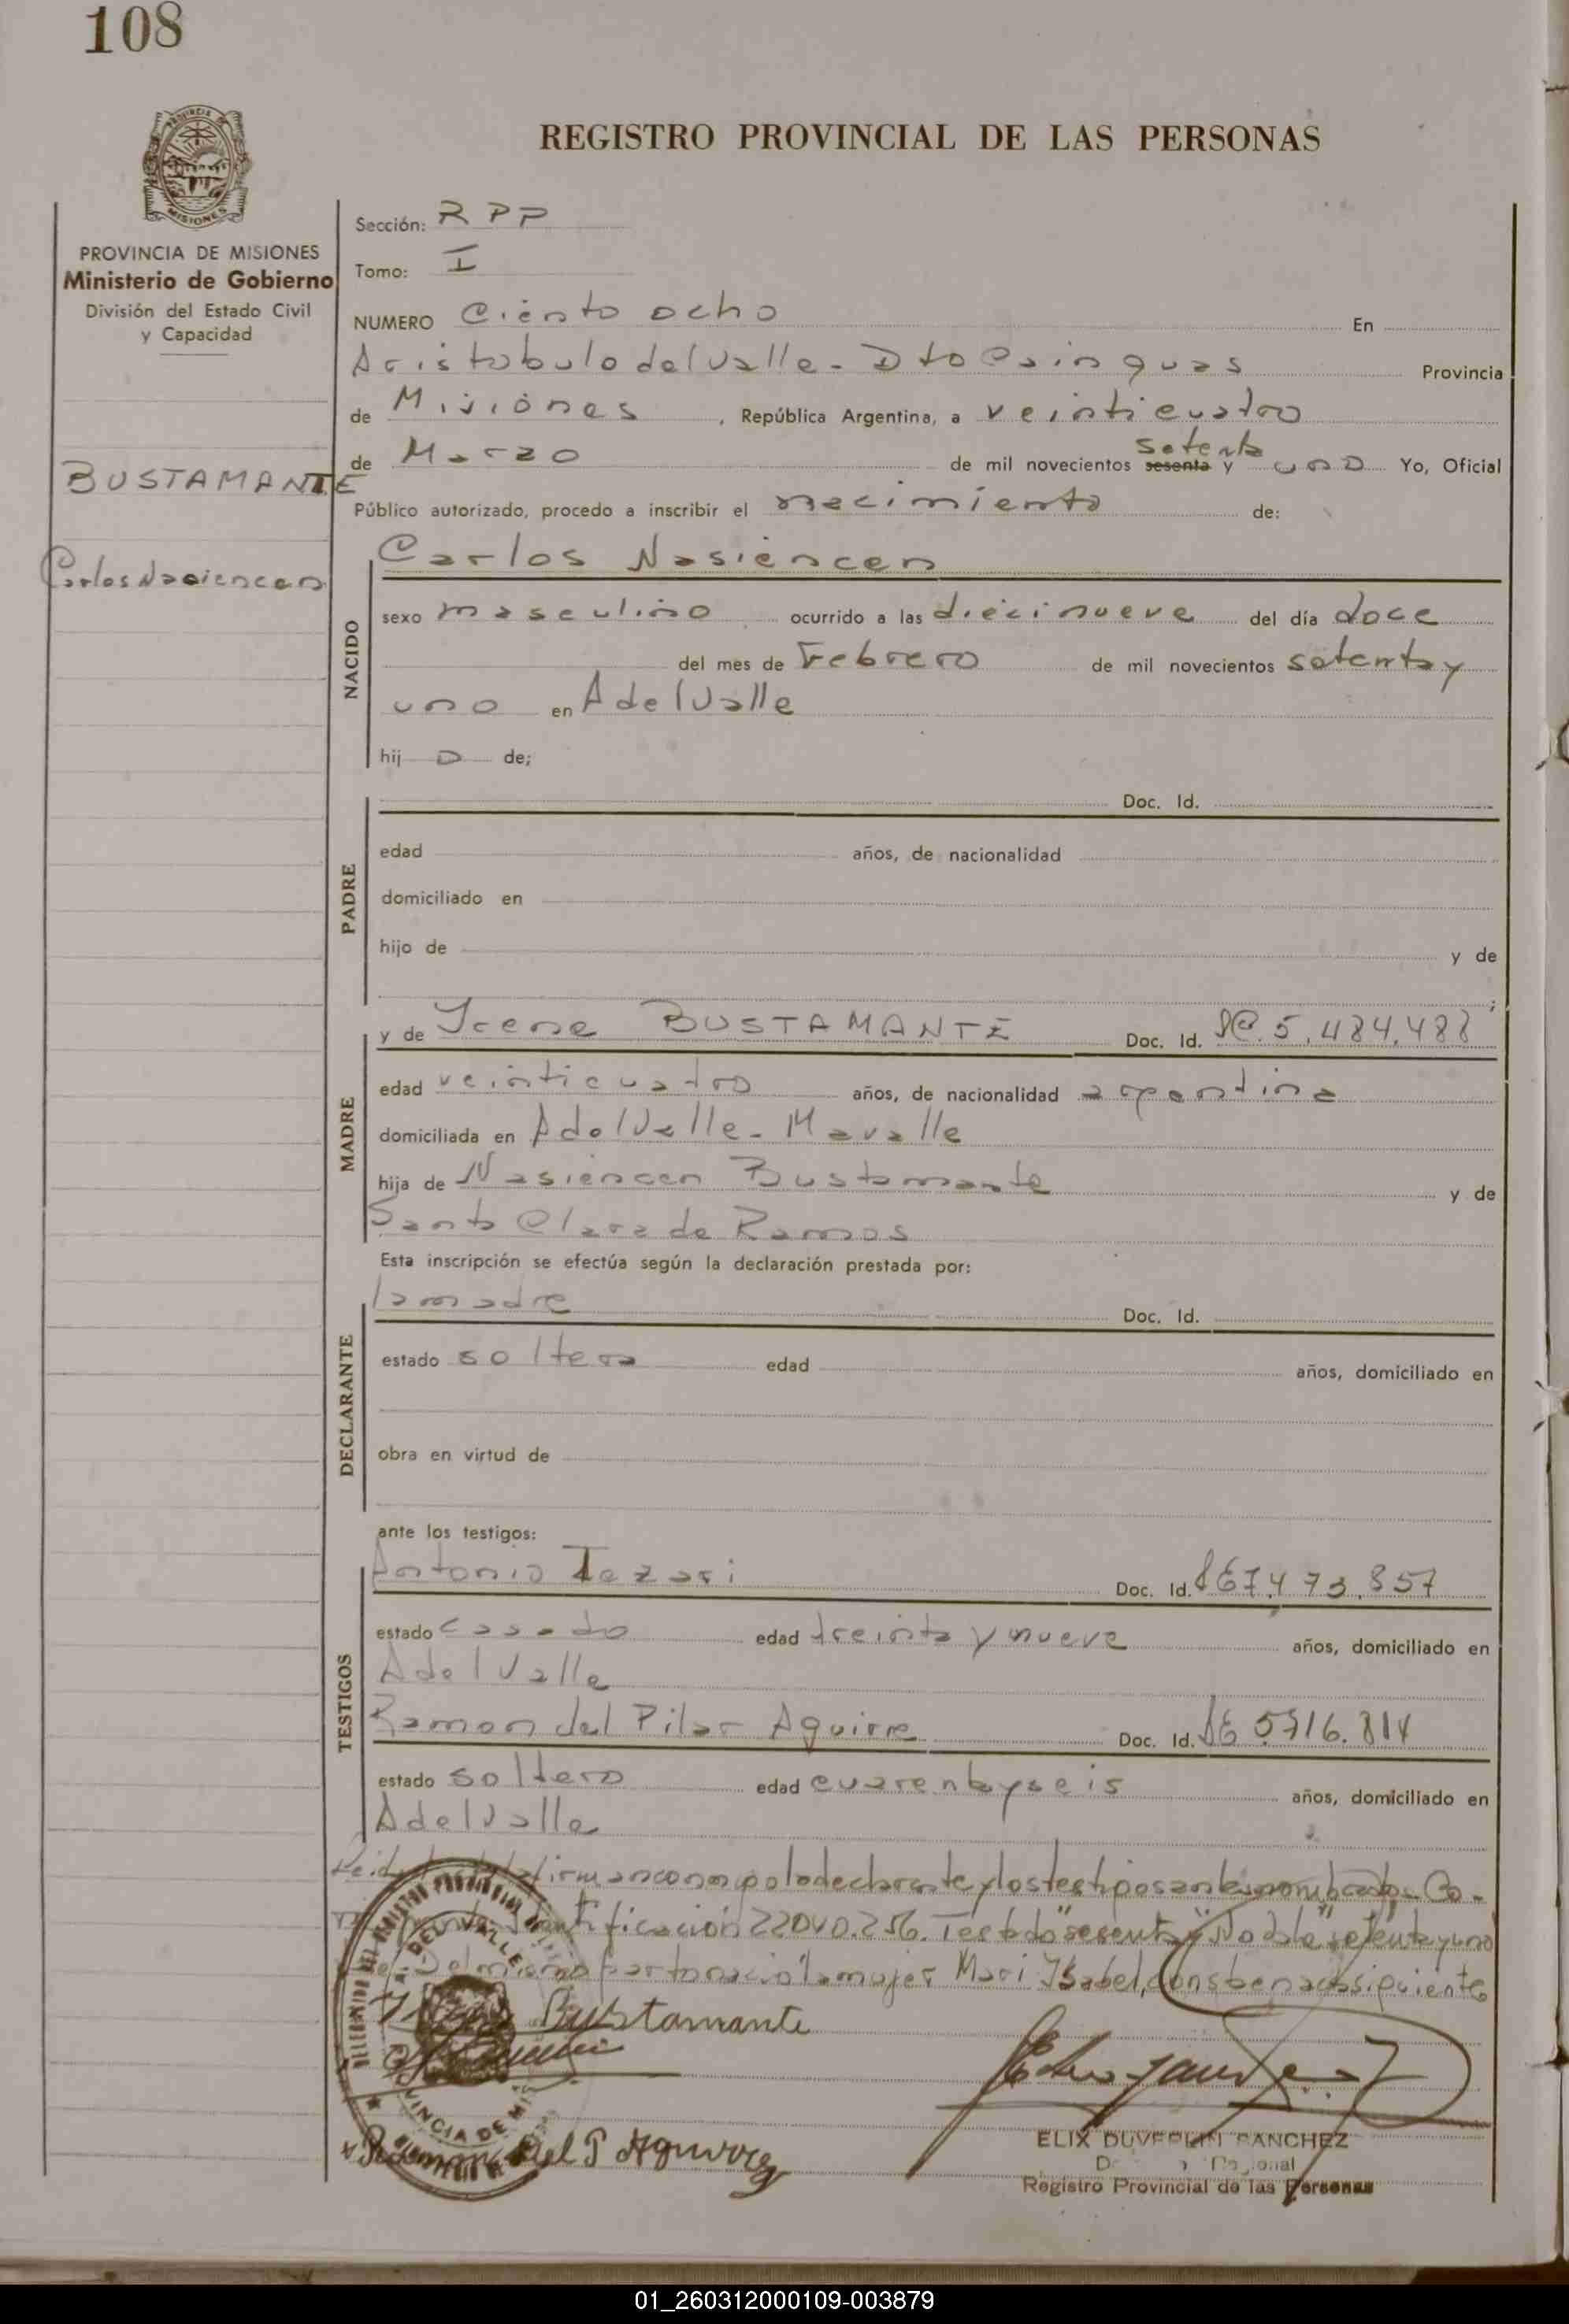 108
REGISTRO PROVINCIAL DE LAS PERSONAS
PROVINCIA DE MISIONES
Ministerio de Gobierno
División del Estado Civil
y Capacidad
BUSTAMANTE
Carlos Nasiencen
Sección: RPP
Tomo: I
NUMERO Ciento ocho En
Aristobulo del Valle - Dto Cainguas Provincia
de Misiones, República Argentina, a veinticuatro
de Marzo de mil novecientos sesenta setenta y uno Yo, Oficial
Público autorizado, procedo a inscribir el nacimiento de:
NACIDO
Carlos Nasiencen
sexo masculino ocurrido a las diecinueve del día doce
del mes de Febrero de mil novecientos setenta y
uno en A del Valle
hij o de;
PADRE
Doc. Id.
edad años, de nacionalidad
domiciliado en
hijo de y de
MADRE
y de Irene BUSTAMANTE Doc. Id. 5.484.488
edad veinticuatro años, de nacionalidad argentina
domiciliada en A del Valle - Mavalle
hija de Nasiencen Bustamante y de
Santa Clara de Ramos
Esta inscripción se efectúa según la declaración prestada por:
DECLARANTE
la madre Doc. Id.
estado soltera edad años, domiciliado en
obra en virtud de
ante los testigos:
TESTIGOS
Antonio Tezari Doc. Id. 7.473.857
estado casado edad treinta y nueve años, domiciliado en
A del Valle
Ramon del Pilar Aguirre Doc. Id.
estado soltero edad cuarenta y seis años, domiciliado en
A del Valle
firman conmigo la declarante y los testigos antes nombrados - Co-
tificación 22040.256. Testado "sesenta y" No vale "setenta y uno
Del mismo parto nació la mujer Mari Ysabel, consta en acta siguiente
Bustamante
A. DEL VALLE
PROVINCIA DE
Del P Aguirre
SANCHEZ
Registro Provincial de las Personas
01_260312000109-003879